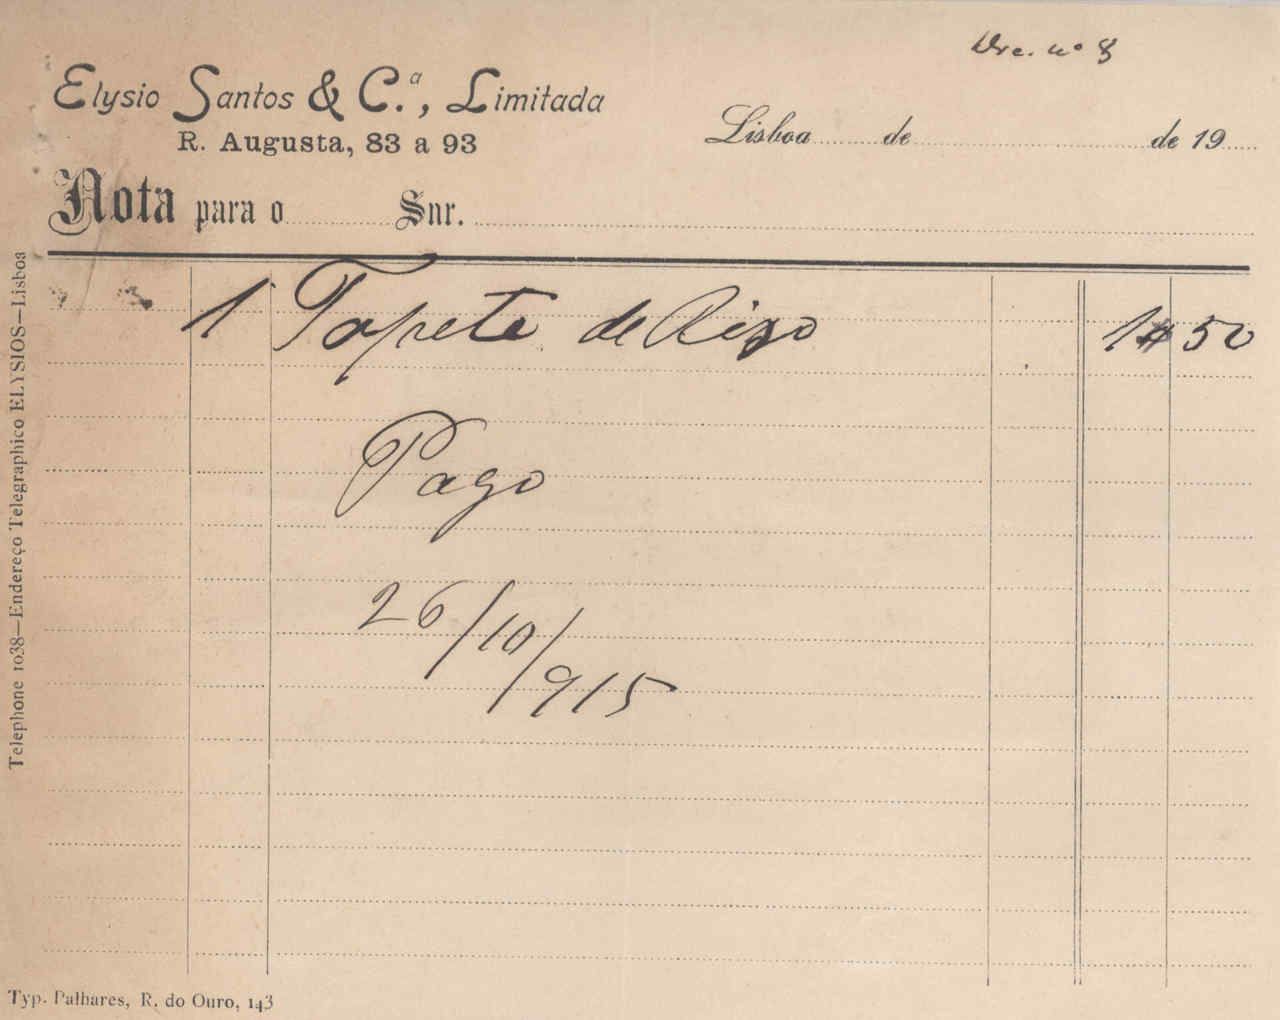 Doc. nº 8
Elysio Santos & C.ª, Limitada
R. Augusta, 83 a 93
Lisboa de de 19
Nota para o Snr.
1 Tapete de Rizo 1$50
Pago
26/10/915
Telephone 1038—Endereço Telegraphico ELYSIOS—Lisboa
Typ. Palhares, R. do Ouro, 143